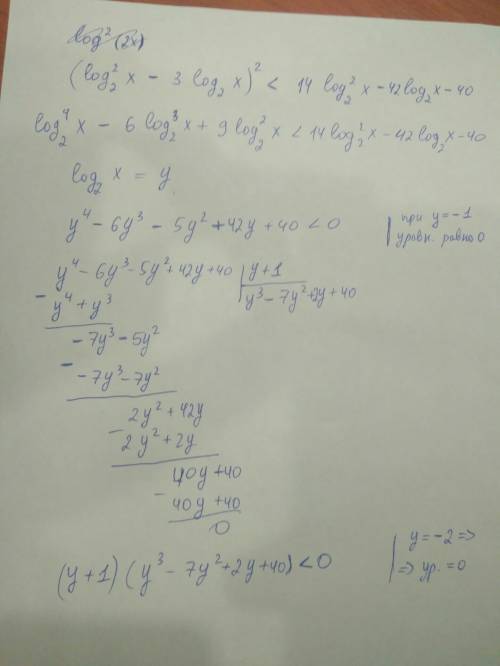 log² (2x)
(log₂² x − 3 log₂ x)² < 14 log₂² x − 42 log₂ x − 40
log₂⁴ x − 6 log₂³ x + 9 log₂² x < 14 log₂² x − 42 log₂ x − 40
log₂ x = y
y⁴ − 6y³ − 5y² + 42y + 40 < 0 | при y = −1
уравн. равно 0
y⁴ − 6y³ − 5y² + 42y + 40 | y + 1
− y⁴ + y³ | y³ − 7y² + 2y + 40
− 7y³ − 5y²
− − 7y³ − 7y²
2y² + 42y
− 2y² + 2y
40y + 40
− 40y + 40
0
(y + 1) (y³ − 7y² + 2y + 40) < 0 | y = −2 =>
=> ур. = 0